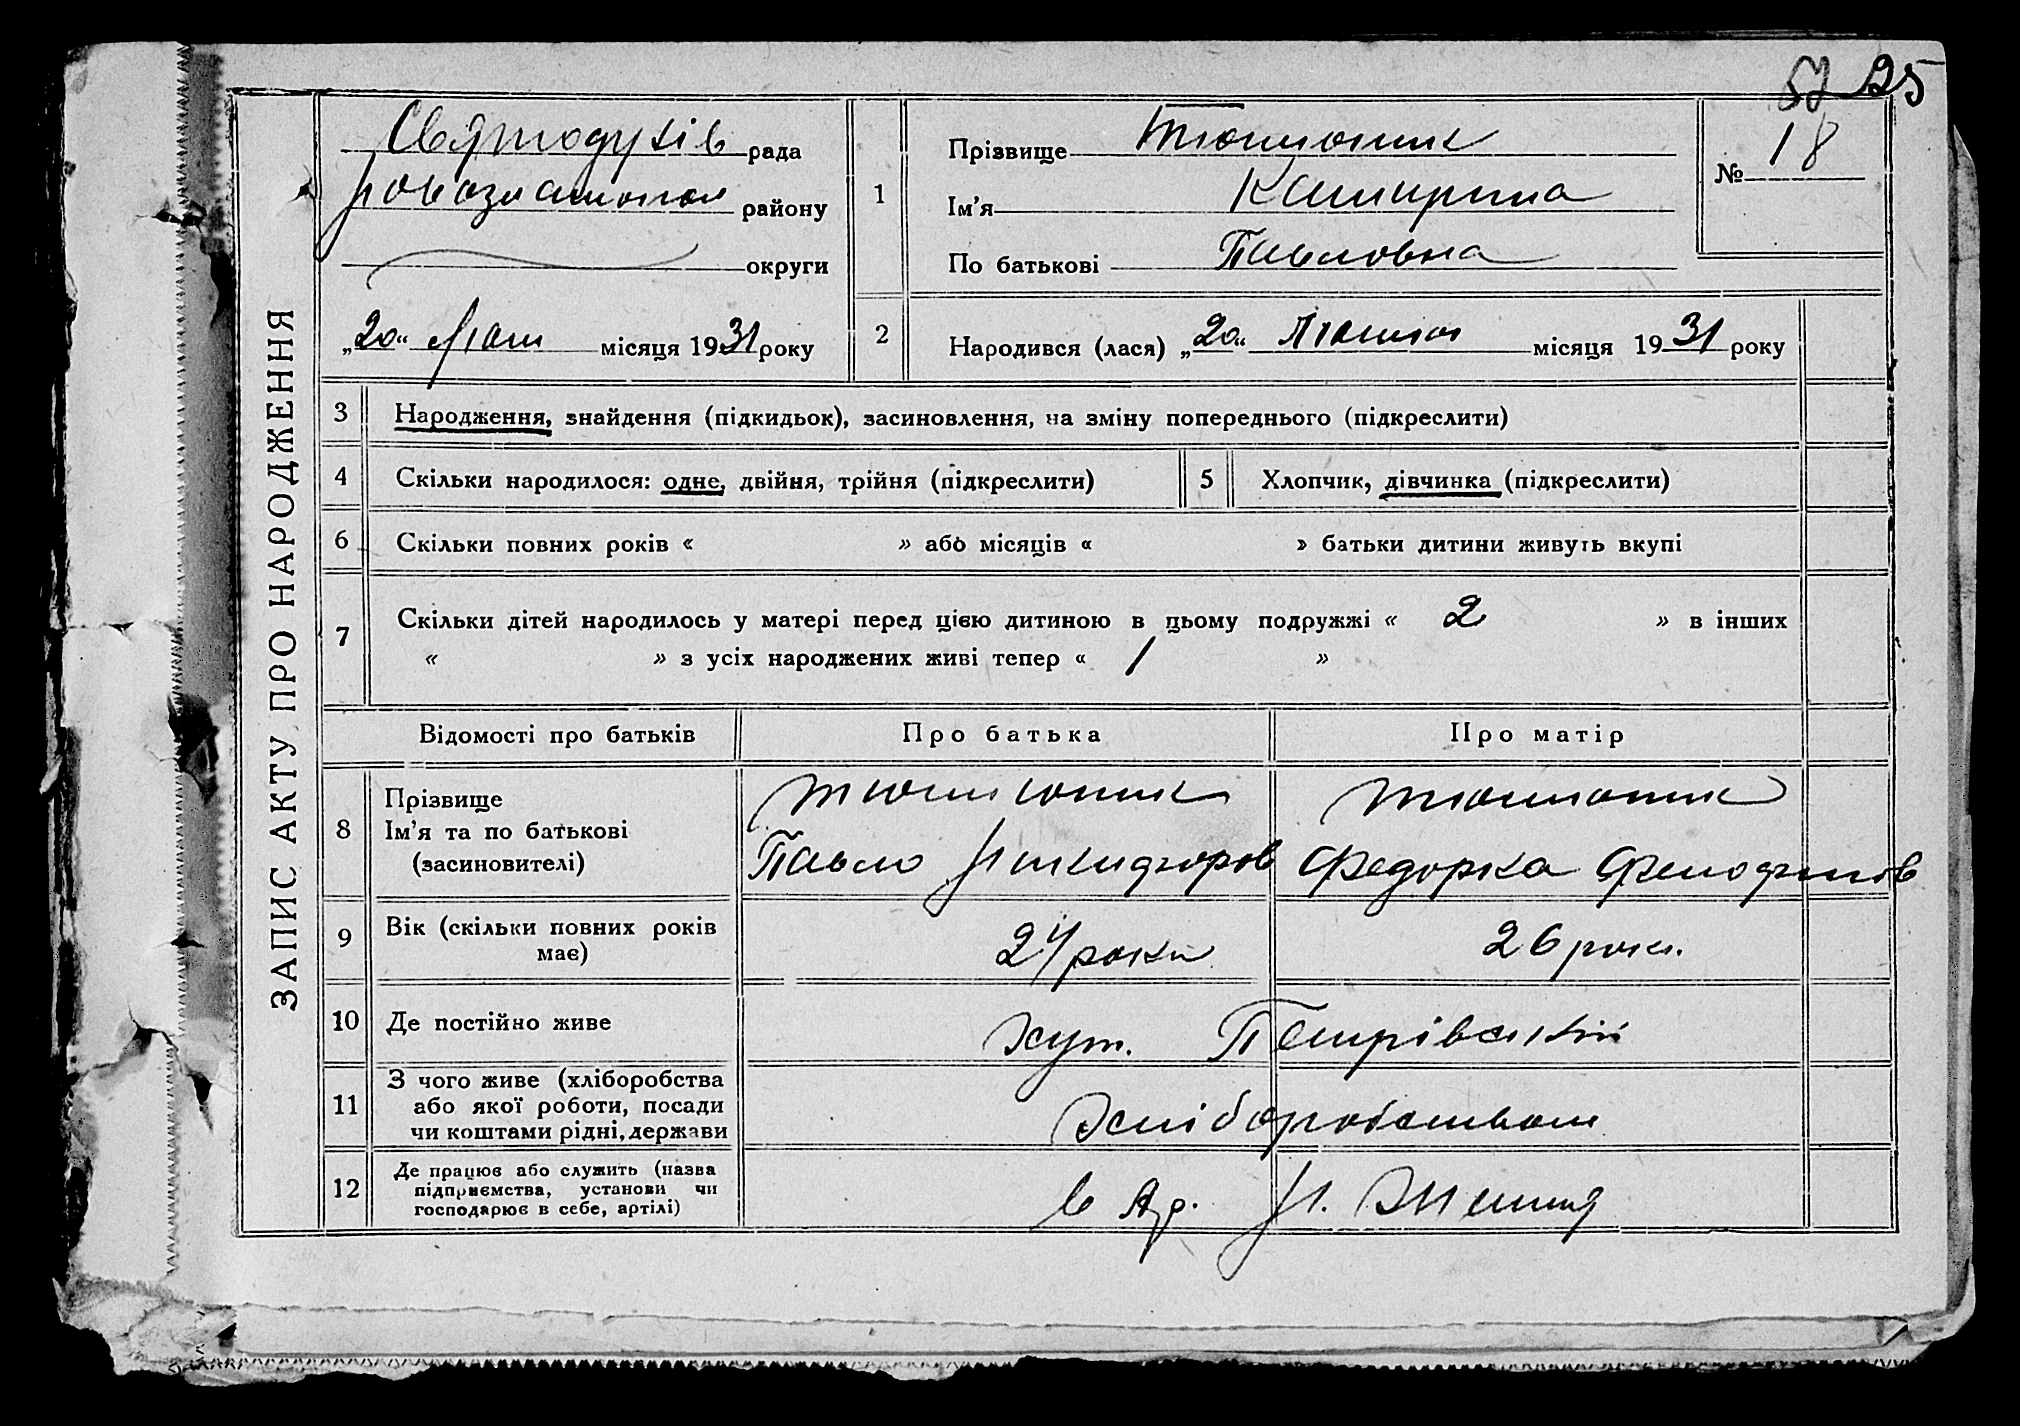 52 25
ЗАПИС АКТУ ПРО НАРОДЖЕННЯ
Святодухів рада
району
округи
„20“ місяця 1931 року
1
Прізвище Тютюник
Ім’я Катирина
По батькові Павловна
№ 18
2
Народився (лася) „20“ місяця 1931 року
3 Народження, знайдення (підкидьок), засиновлення, на зміну попереднього (підкреслити)
4 Скільки народилося: одне, двійня, трійня (підкреслити) 5 Хлопчик, дівчинка (підкреслити)
6 Скільки повних років « » або місяців « » батьки дитини живуть вкупі
7 Скільки дітей народилось у матері перед цією дитиною в цьому подружжі « 2 » в інших
« » з усіх народжених живі тепер « 1 »
Відомості про батьків Про батька Про матір
8 Прізвище
Ім’я та по батькові
(засиновителі)
Тютюник
Павло
Тютюник
Федорка
9 Вік (скільки повних років
має)
24 роки 26 рок.
10 Де постійно живе хут. Петрівский
11 З чого живе (хліборобства
або якої роботи, посади
чи коштами рідні, держави
Хліборобством
12 Де працює або служить (назва
підприємства, установи чи
господарює в себе, артілі)
в Ар.